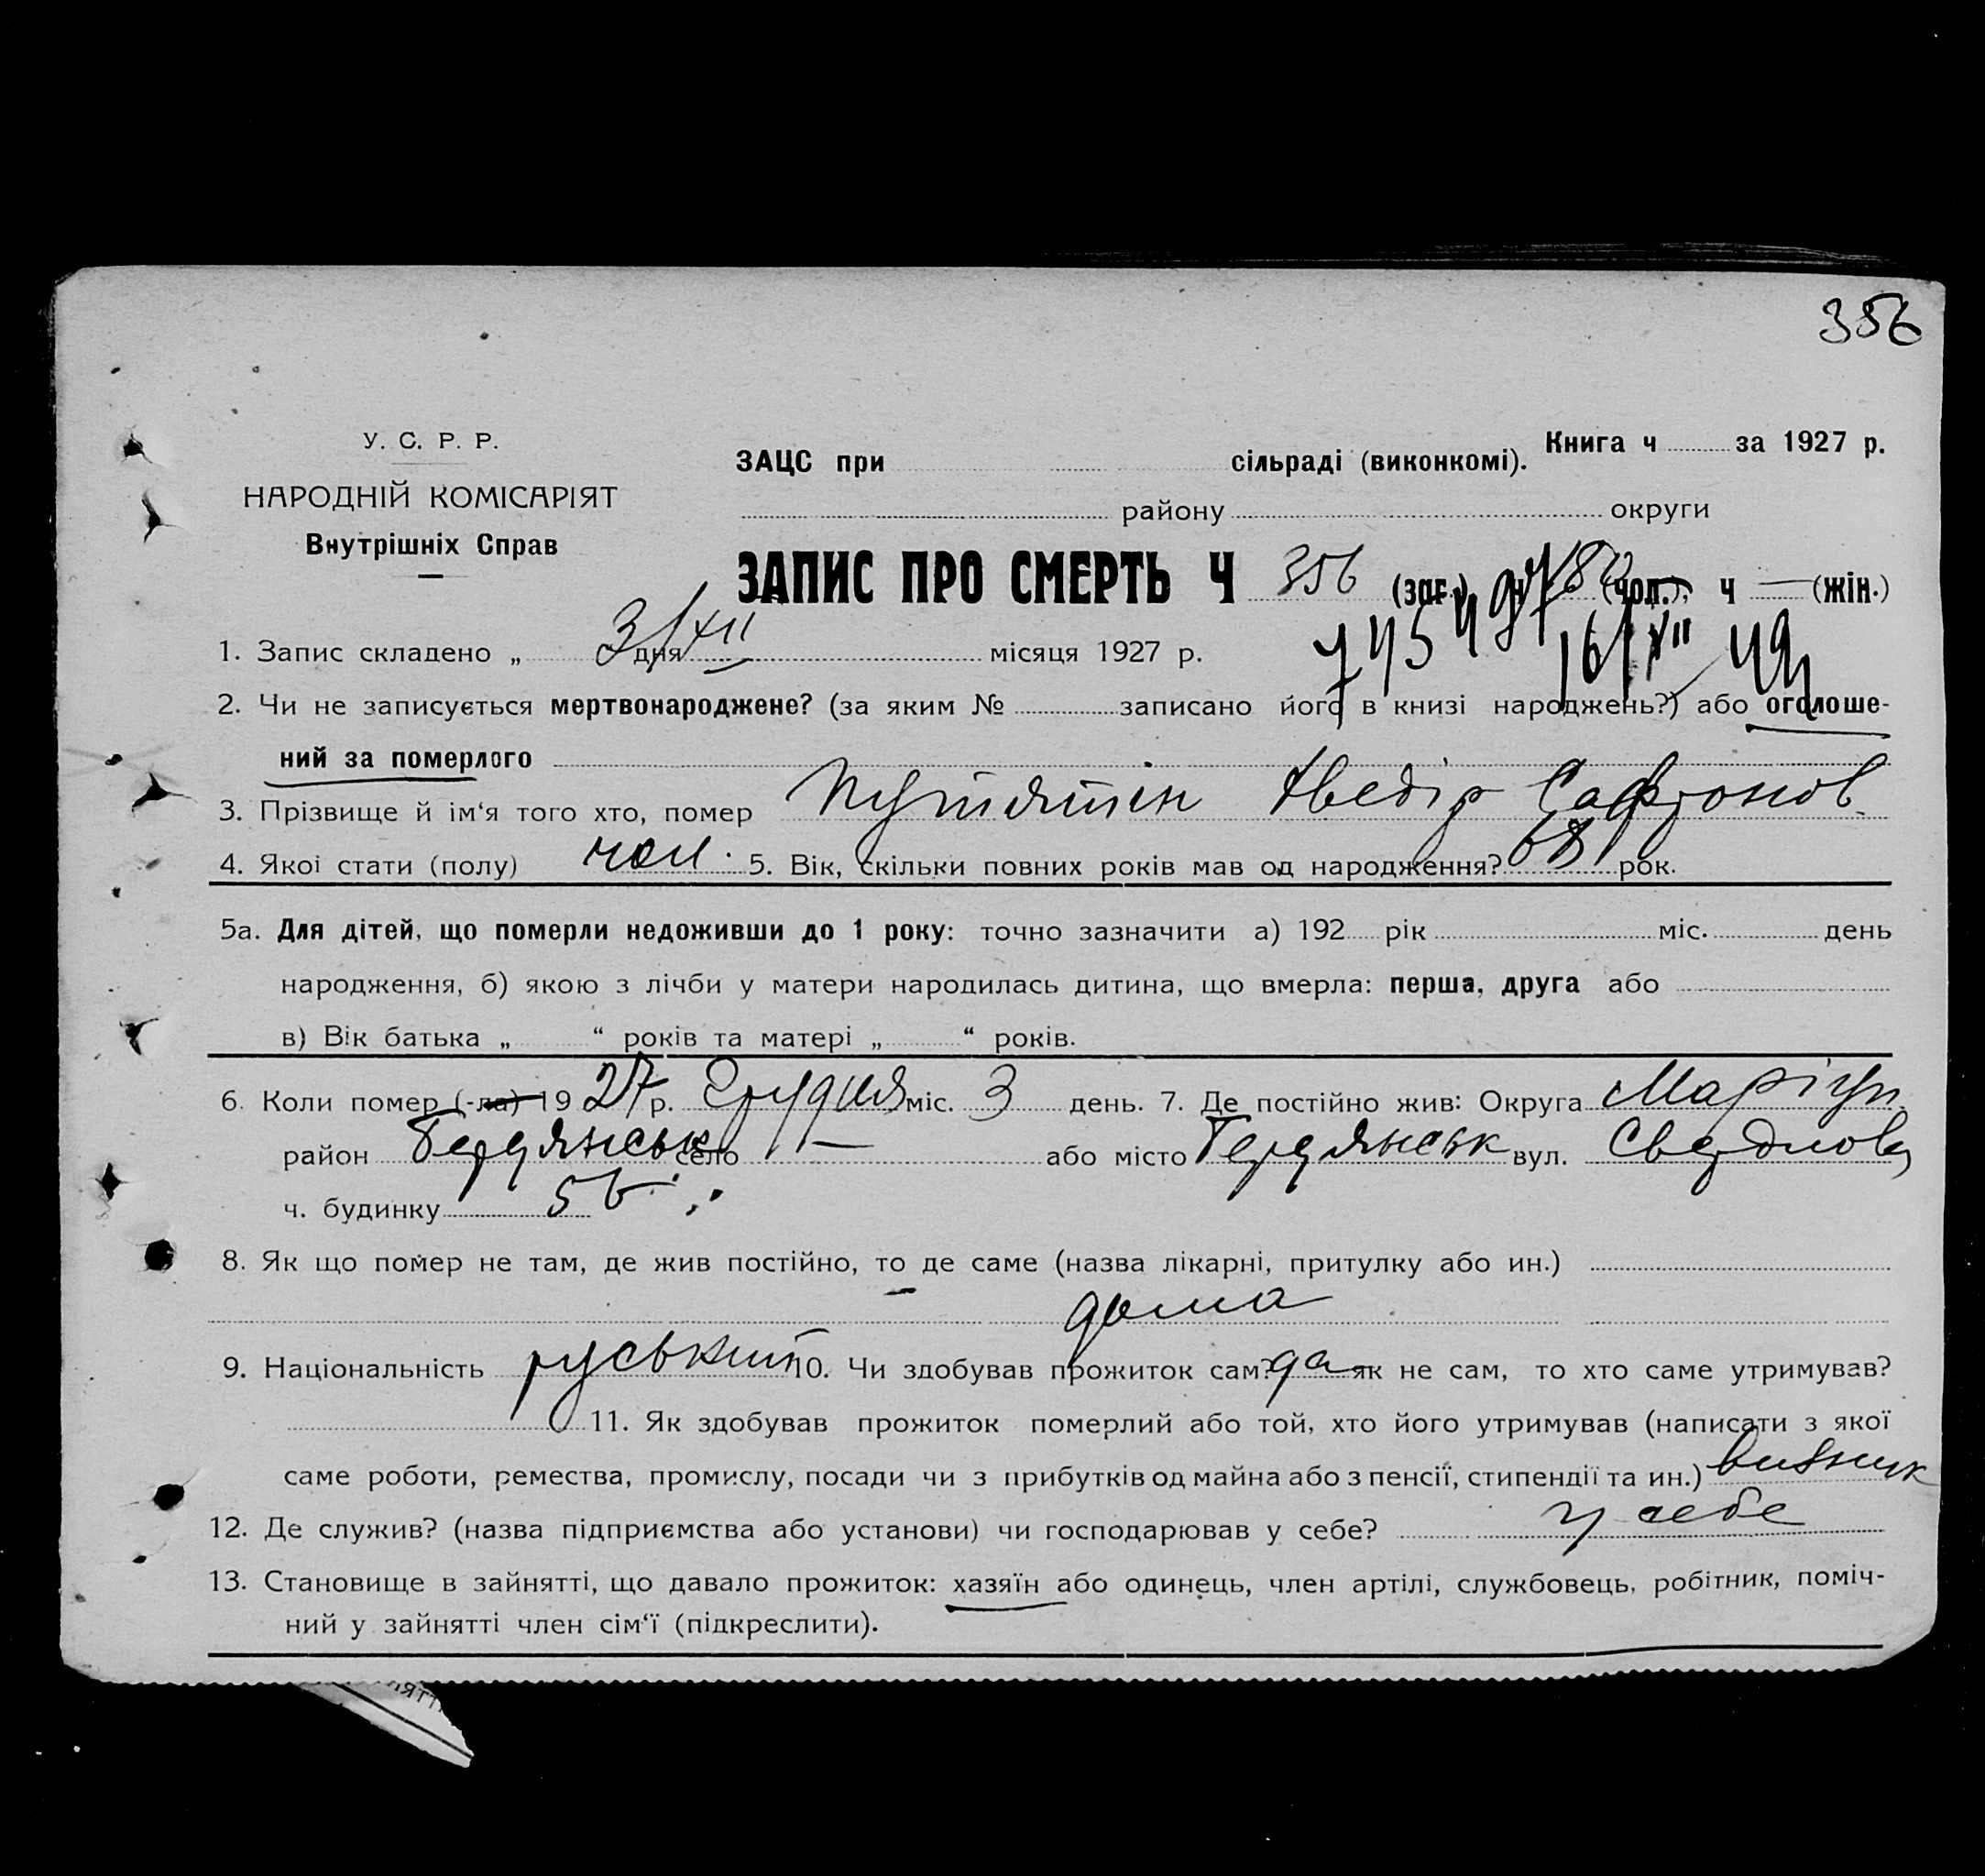 356
У. С. Р. Р.
НАРОДНІЙ КОМІСАРІЯТ
Внутрішніх Справ
Книга ч за 1927 р.
ЗАЦС при сільраді (виконкомі).
району округи
ЗАПИС ПРО СМЕРТЬ Ч 356 (заг.) (чол.), ч — (жін.)
1. Запис складено „ 3/XII дня місяця 1927 р.
2. Чи не записується мертвонароджене? (за яким № записано його в книзі народжень?) або оголоше-
ний за померлого
3. Прізвище й ім‘я того хто, помер Путятін Хведір Сафронов
4. Якої стати (полу) чол. 5. Вік, скільки повних років мав од народження? 68 рок.
5а. Для дітей, що померли недоживши до 1 року: точно зазначити а) 192 рік міс. день
народження, б) якою з лічби у матери народилась дитина, що вмерла: перша, друга або
в) Вік батька „ “ років та матері „ “ років.
6. Коли помер (-ла) 1927 р. Грудня міс. 3 день. 7. Де постійно жив: Округа Маріуп.
район Бердянськ село — або місто Бердянськ вул. Свердлова
ч. будинку
8. Як що помер не там, де жив постійно, то де саме (назва лікарні, притулку або ин.)
дома
9. Національність руський 10. Чи здобував прожиток сам? да як не сам, то хто саме утримував?
11. Як здобував прожиток померлий або той, хто його утримував (написати з якої
саме роботи, ремества, промислу, посади чи з прибутків од майна або з пенсії, стипендії та ин.) визник
12. Де служив? (назва підприємства або установи) чи господарював у себе? у себе
13. Становище в зайнятті, що давало прожиток: хазяїн або одинець, член артілі, службовець, робітник, поміч-
ний у зайнятті член сім‘ї (підкреслити).